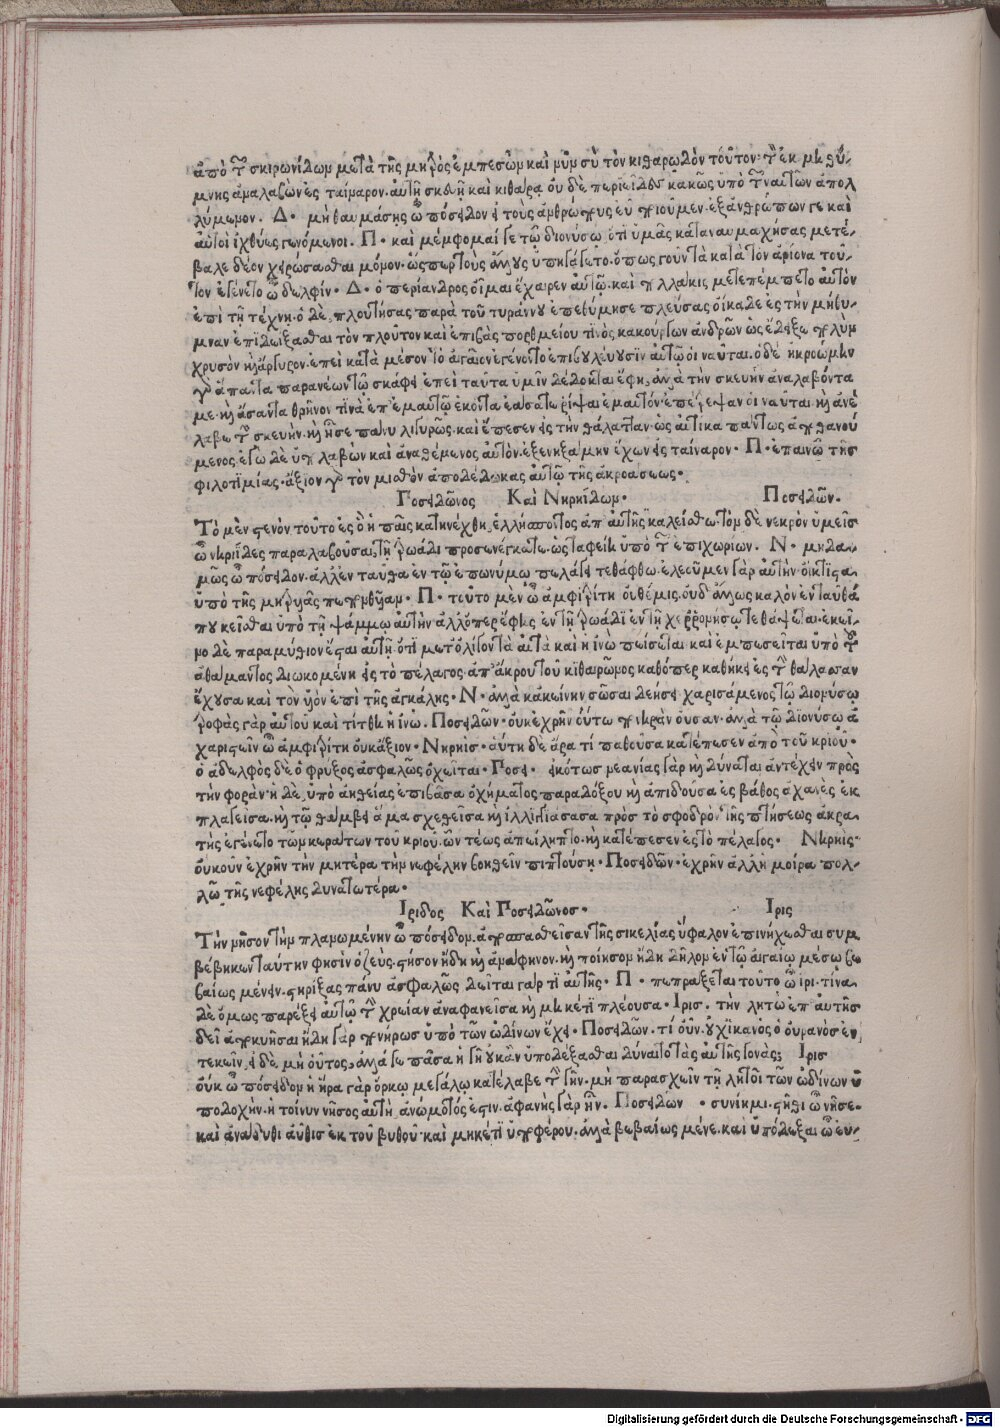 ἀπὸ τῶν σκιρωνίδων μετὰ τῆς μητρὸς ἐμπεσὼν καὶ νῦν σὺ τὸν κιθαρωδὸν τοῦτον τὸν ἐκ μηθύ-
μνης ἀναλαβὼν ἐς ταίναρον. αὐτῇ σκευῇ καὶ κιθάρα οὐδὲ περιεῖδες κακῶς ὑπὸ τῶν ναυτῶν ἀπολ
λύμενον. Δ· μὴ θαυμάσῃς ὦ πόσειδον εἰ τοὺς ἀνθρώπους εὖ ποιοῦμεν. ἐξ ἀνθρώπων γε καὶ
αὐτοὶ ἰχθύες γενόμενοι. Π· καὶ μέμφομαί γε τῷ διονύσῳ, ὅτι ὑμᾶς καταναυμαχήσας μετέ-
βαλε δέον χειρώσασθαι μόνον. ὥσπερ τοὺς ἄλλους ὑπηγάγετο. ὅπως γοῦν τὰ κατὰ τὸν ἀρίονα τοῦ-
τον ἐγένετο ὦ δελφίν· Δ· ὁ περίανδρος οἶμαι ἔχαιρεν αὐτῷ. καὶ πολλάκις μετεπέμπετο αὐτὸν
ἐπὶ τῇ τέχνῃ. ὁ δὲ πλουτήσας παρὰ τοῦ τυράννου ἐπεθύμησε πλεύσας οἴκαδε ἐς τὴν μήθυ-
μναν ἐπιδείξασθαι τὸν πλοῦτον καὶ ἐπιβὰς πορθμείου τινὸς κακούργων ἀνδρῶν ὡς ἔδειξε πολὺν
χρυσὸν καὶ ἄργυρον. ἐπεὶ κατὰ μέσον τὸ ἀγαῖον ἐγένοντο ἐπιβουλεύουσιν αὐτῷ οἱ ναῦται. ὁ δὲ ἠκροώμην
γὰρ ἅπαντα παρανέων τῷ σκάφει ἐπεὶ ταῦτα ὑμῖν δέδοκται ἔφη. ἀλλὰ τὴν σκευὴν ἀναλαβόντα
με. καὶ ἄσαντα θρῆνον τινὰ ἐπ' ἐμαυτῷ ἑκόντα ἐάσατε ῥίψαι ἐμαυτόν. ἐπέτρεψαν οἱ ναῦται. καὶ ἀνέ
λαβε τὴν σκευὴν. καὶ ᾖσε πάνυ λιγυρῶς. καὶ ἔπεσεν εἰς τὴν θάλατταν. ὡς αὐτίκα πάντως ἀποθανού
μενος. ἐγὼ δὲ ὑπολαβὼν καὶ ἀναθέμενος αὐτὸν. ἐξενηξάμην ἔχων εἰς ταίναρον. Π· ἐπαινῶ τῆς
φιλοτιμίας. ἄξιον γὰρ τὸν μισθὸν ἀποδέδωκας αὐτῷ τῆς ἀκροάσεως.
Ποσειδῶνος Καὶ Νηρηΐδων. Ποσειδῶν.
Τὸ μὲν στενὸν τοῦτο ἐς ὃ ἡ παῖς κατηνέχθη. ἑλλήσποντος ἀπ' αὐτῆς καλείσθω. τὸν δὲ νεκρὸν ὑμεῖς
ὦ νηρηΐδες παραλαβοῦσαι τῇ τρωάδι προσενέγκατε. ὡς ταφείη ὑπὸ τῶν ἐπιχωρίων. Ν· μηδα-
μῶς ὦ πόσειδον. ἀλλ' ἐνταῦθα ἐν τῷ ἐπωνύμῳ πελάγει τεθάφθω. ἐλεοῦμεν γὰρ αὐτὴν οἴκτιστα
ὑπὸ τῆς μητρυιᾶς πεπονθυῖαν. Π· τοῦτο μὲν ὦ ἀμφιτρίτη οὐ θέμις. οὐδ' ἄλλως καλὸν ἐνταῦθά
που κεῖσθαι ὑπὸ τῇ ψάμμῳ αὐτὴν ἀλλ' ὅπερ ἔφην ἐν τῇ τρωάδι ἐν τῇ χερρονήσῳ τεθάψεται. ἐκεῖ-
νο δὲ παραμύθιον ἔσται αὐτῇ. ὅτι μετ' ὀλίγον τὰ αὐτὰ καὶ ἡ ἰνὼ πείσεται. καὶ ἐμπεσεῖται ὑπὸ τοῦ
ἀθάμαντος διωκομένη εἰς τὸ πέλαγος. ἀπ' ἄκρου τοῦ κιθαιρῶνος καθόπερ καθήκει ἐς τὴν θάλασσαν
ἔχουσα καὶ τὸν υἱὸν ἐπὶ τῆς ἀγκάλης. Ν· ἀλλὰ κἀκείνην σῶσαι δεήσει χαρισάμενος τῷ διονύσῳ
τροφὸς γὰρ αὐτοῦ καὶ τίτθη ἡ ἰνώ. Ποσειδῶν· οὐκ ἐχρῆν οὕτω πικρὰν οὖσαν. ἀλλὰ τῷ διονύσῳ ἀ
χαριστεῖν ὦ ἀμφιτρίτη οὐκ ἄξιον. Νηρηὶς· αὕτη δὲ ἄρα τί παθοῦσα κατέπεσεν ἀπὸ τοῦ κριοῦ·
ὁ ἀδελφὸς δὲ ὁ φρύξος ἀσφαλῶς ὀχεῖται. Ποσει· εἰκότως νεανίας γὰρ καὶ δύναται ἀντέχειν πρὸς
τὴν φοράν. ἡ δὲ ὑπὸ ἀηθείας ἐπιβᾶσα ὀχήματος παραδόξου καὶ ἀπιδοῦσα ἐς βάθος ἀχανὲς ἐκ
πλαγεῖσα. καὶ τῷ θάμβει ἅμα σχεθεῖσα καὶ ἰλλιγγιάσασα πρὸς τὸ σφοδρὸν τῆς πτήσεως ἀκρα-
τὴς ἐγένετο τῶν κεράτων τοῦ κριοῦ. ὧν τέως ἀπείληπτο. καὶ κατέπεσεν ἐς τὸ πέλαγος. Νηρηὶς·
οὐκοῦν ἐχρῆν τὴν μητέρα τὴν νεφέλην βοηθεῖν πιπτούσῃ. Ποσειδῶν· ἐχρῆν ἀλλ' ἡ μοίρα πολ-
λῷ τῆς νεφέλης δυνατωτέρα.
Ιριδος Καὶ Ποσειδῶνος. Ιρις
Τὴν νῆσον τὴν πλανωμένην ὦ πόσειδον. ἀποσπασθεῖσαν τῆς σικελίας ὕφαλον ἐπινήχεσθαι συμ
βέβηκεν ταύτην φησὶν ὁ ζεὺς. στῆσον ἤδη καὶ ἀνάφηνον. καὶ ποίησον ἤδη δῆλον ἐν τῷ αἰγαίῳ μέσῳ βε
βαίως μένειν. στηρίξας πάνυ ἀσφαλῶς δεῖται γάρ τι αὐτῆς. Π· πεπράξεται τοῦτο ὦ ἶρι. τίνα
δὲ ὅμως παρέξει αὐτῷ τὴν χρείαν ἀναφανεῖσα καὶ μηκέτι πλέουσα. Ιρισ. τὴν λητὼ ἐπ' αὐτῆς
δεῖ ἀποκυῆσαι ἤδη γὰρ πονήρως ὑπὸ τῶν ὠδίνων ἔχει. Ποσειδῶν. τί οὖν. οὐχ ἱκανὸς ὁ οὐρανὸς ἐν
τεκεῖν. εἰ δὲ μὴ οὗτος, ἀλλά γε πᾶσα ἡ γῆ οὐκ ἂν ὑπολέξασθαι δύναιτο τὰς αὐτῆς γονὰς; Ιρις
οὔκ ὦ πόσειδον ἡ ἥρα γὰρ ὅρκῳ μεγάλῳ κατέλαβε τὴν γῆν. μὴ παρασχεῖν τῇ λητοῖ τῶν ὠδίνων ὑ
ποδοχὴν. ἡ τοίνυν νῆσος αὕτη ἀνώμοτός ἐστιν. ἀφανὴς γὰρ ἦν. Ποσειδων · συνίημι. στῆθι ὦ νῆσε-
καὶ ἀνάδυθι αὖθις ἐκ τοῦ βυθοῦ· καὶ μηκέτι ὑποφέρου. ἀλλὰ βεβαίως μένε. καὶ ὑπόδεξαι ὦ εὐ-